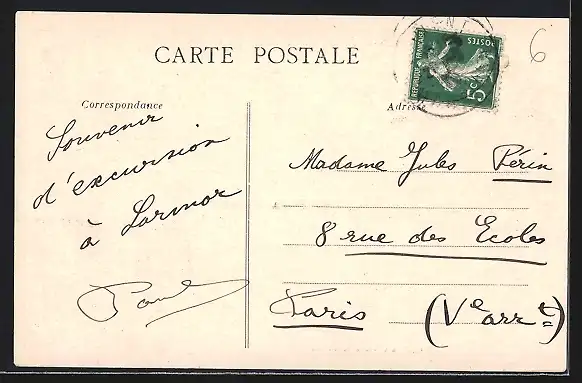 CARTE POSTALE
POSTES
RÉPUBLIQUE FRANÇAISE
5c
6
Correspondance
Adresse
Souvenir
d'excursion
à Larmor
Paul
Madame Jules Périn
8 rue des Ecoles
Paris (Ve arrt)